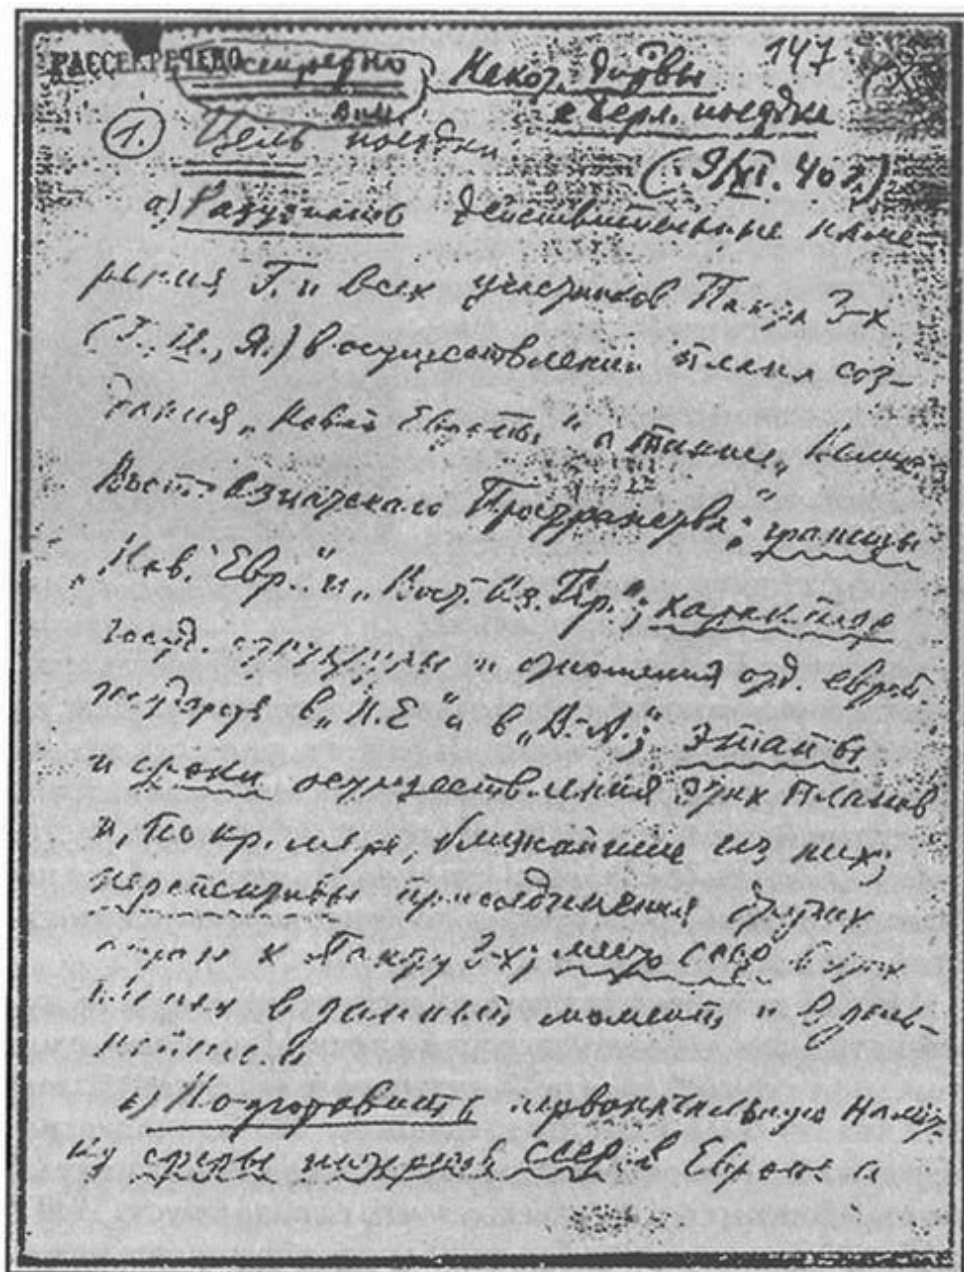 147
РАССЕКРЕЧЕНО
Некот. дир-вы
к Берл. поездке
(9/XI. 40 г.)
1. Цель поездки
а) Разузнать действительные наме-
рения Г. и всех участников Пакта 3-х
(Г., И., Я.) в осуществлении плана соз-
дания „Новой Европы", а также „Велик.
Вост.-Азиатского Пространства"; границы
„Нов. Евр." и „Вост.-Аз. Пр."; характер
госуд. структуры и отношения отд. европ.
государств в „Н.Е." и в „В.-А."; этапы
и сроки осуществления этих планов
и, по кр. мере, ближайшие из них;
перспективы присоединения других
стран к Пакту 3-х; место СССР в этих
планах в данный момент и в даль-
нейшем.
б) Подготовить первоначальную намет-
ку сферы интересов СССР в Европе, а